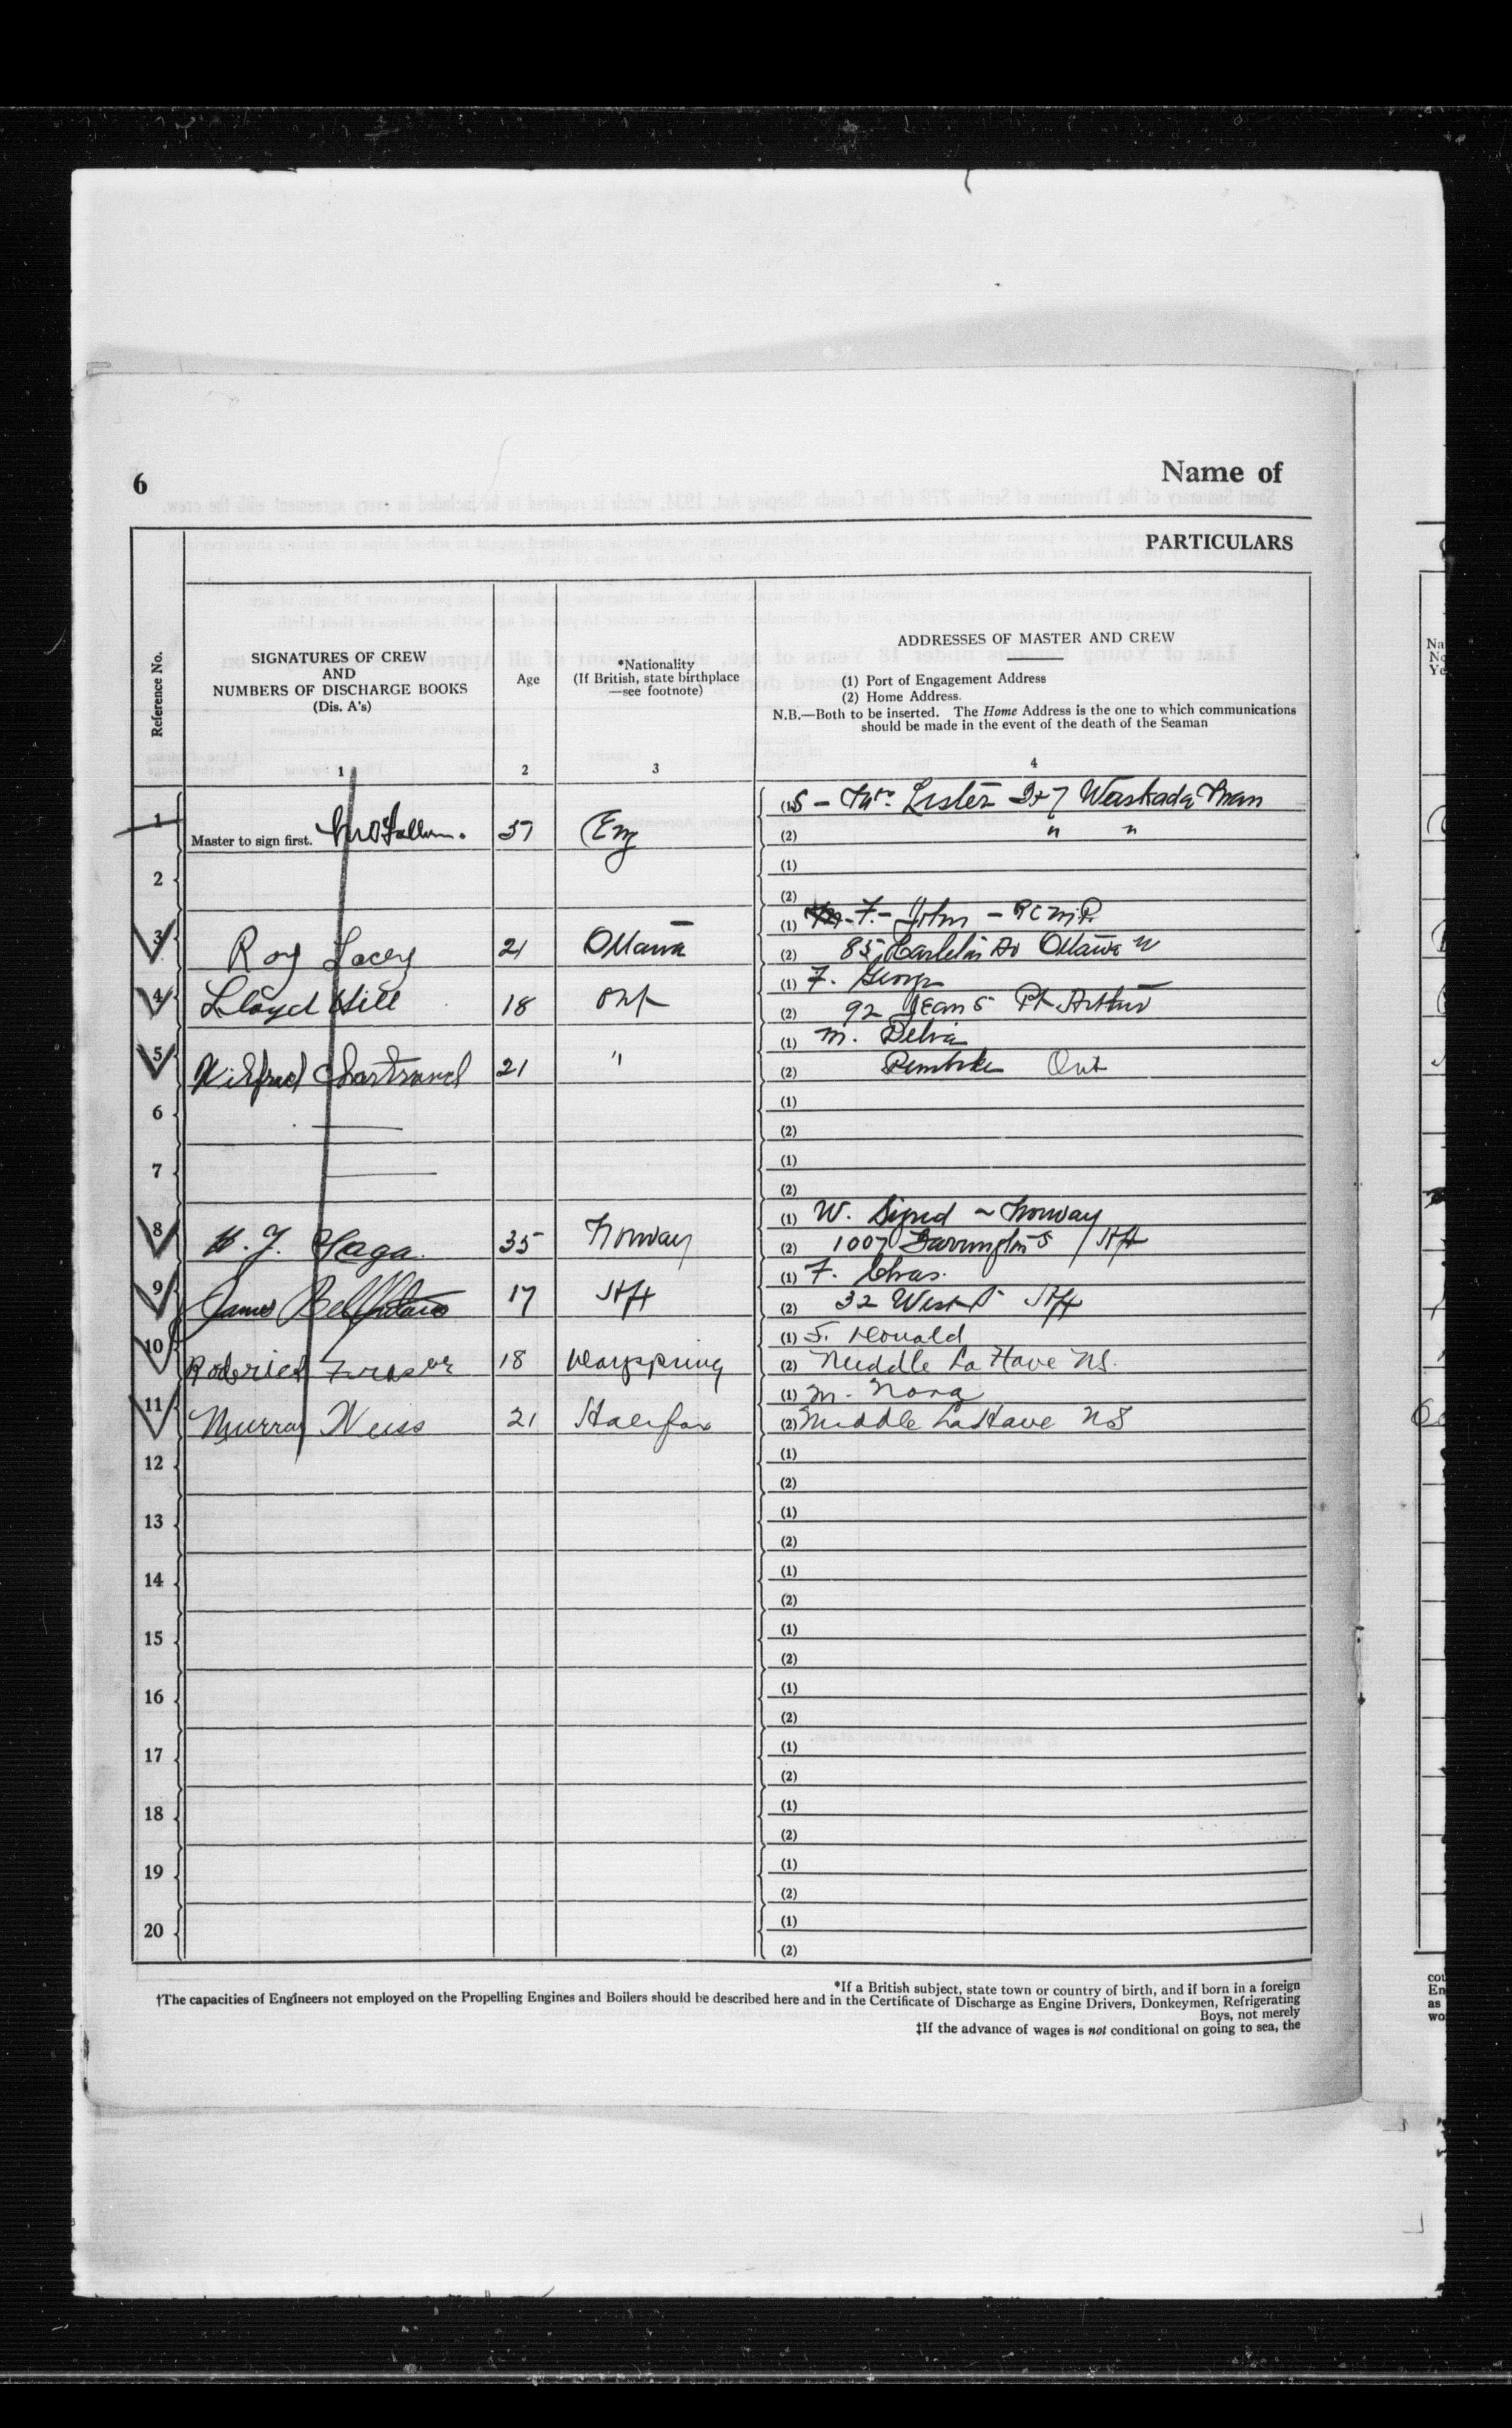 6
Name of
PARTICULARS
Reference No.
SIGNATURES OF CREW
AND
NUMBERS OF DISCHARGE BOOKS
(Dis. A's)
Age
*Nationality
(If British, state birthplace
—see footnote)
ADDRESSES OF MASTER AND CREW
(1) Port of Engagement Address
(2) Home Address.
N.B.—Both to be inserted. The Home Address is the one to which communications
should be made in the event of the death of the Seaman
1 2 3 4
1 Master to sign first. 37 Eng (1) S - Lester Waskada Man
(2) " "
2 (1)
(2)
3 Roy Lacey 21 Ottawa (1) F. - John - RCMP.
(2) 85 Carleton Av Ottawa W
4 Lloyd Hill 18 Ont (1) F. George
(2) 92 Jean S Pt Arthur
5 Wilfred Chartrand 21 " (1) M. Delia
(2) Pembroke Ont
6 (1)
(2)
7 (1)
(2)
8 35 Norway (1) W. Signed ~ Norway
(2) 1007 Barrington S Hfx
9 James 17 Hfx (1) F. Chas.
(2) 32 West S Hfx
10 Roderick Fraser 18 Dayspring (1) F. Donald
(2) Middle La Have NS.
11 Murray Weiss 21 Halifax (1) M. Nora
(2) Middle LaHave NS
12 (1)
(2)
13 (1)
(2)
14 (1)
(2)
15 (1)
(2)
16 (1)
(2)
17 (1)
(2)
18 (1)
(2)
19 (1)
(2)
20 (1)
(2)
*If a British subject, state town or country of birth, and if born in a foreign
†The capacities of Engineers not employed on the Propelling Engines and Boilers should be described here and in the Certificate of Discharge as Engine Drivers, Donkeymen, Refrigerating
Boys, not merely
‡If the advance of wages is not conditional on going to sea, the